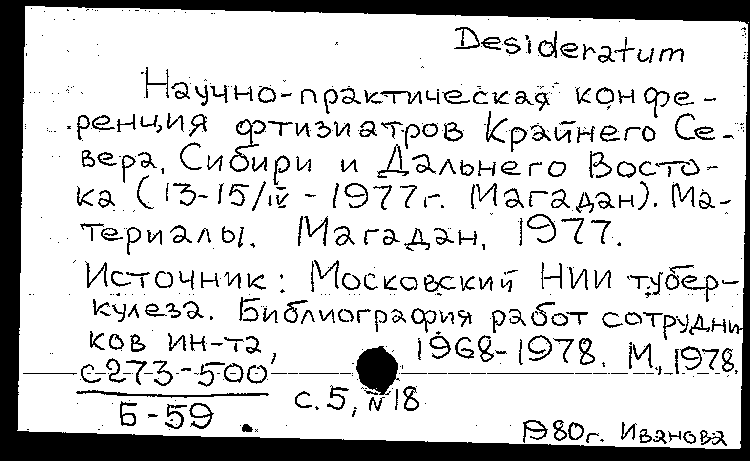 Desideratum
Научно-практическая конфе-
ренция фтизиатров Крайнего Се-
вера, Сибири и Дальнего Восто-
ка (13-15/IV - 1977г. Магадан). Ма-
териалы. Магадан, 1977.
Источник: Московский НИИ тубер-
кулеза. Библиография работ сотрудни
ков ин-та, 1968-1978. М., 1978.
с273-500
Б-59
с. 5, №18
1980г. Иванова